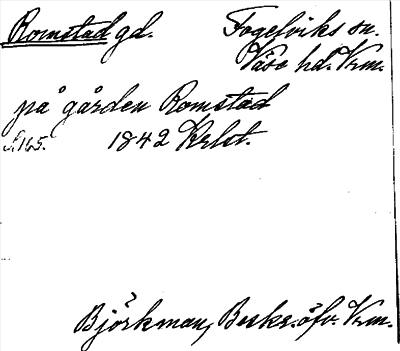 Romstad gd. Fogelviks sn.
Väse hd. Vrm.
på gården Romstad
S. 165. 1842 Krlst.
Björkman, Beskr. öfv. Vrm.